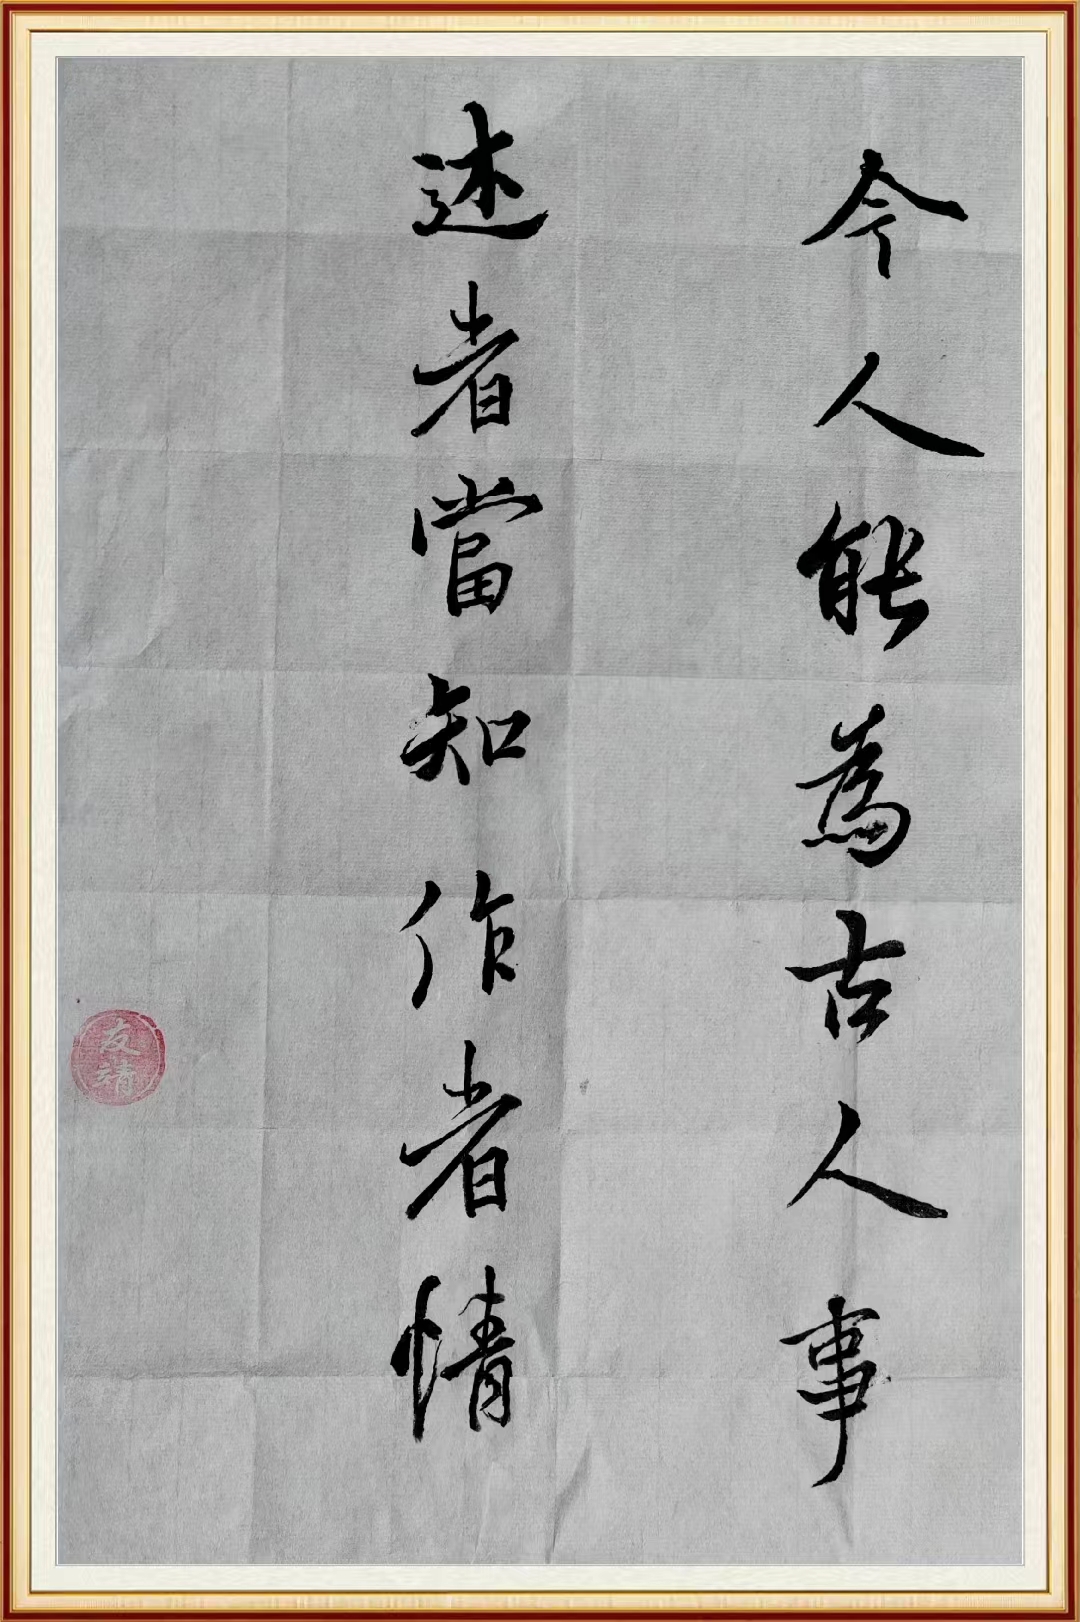 今人能為古人事
述者當知作者情
友靖